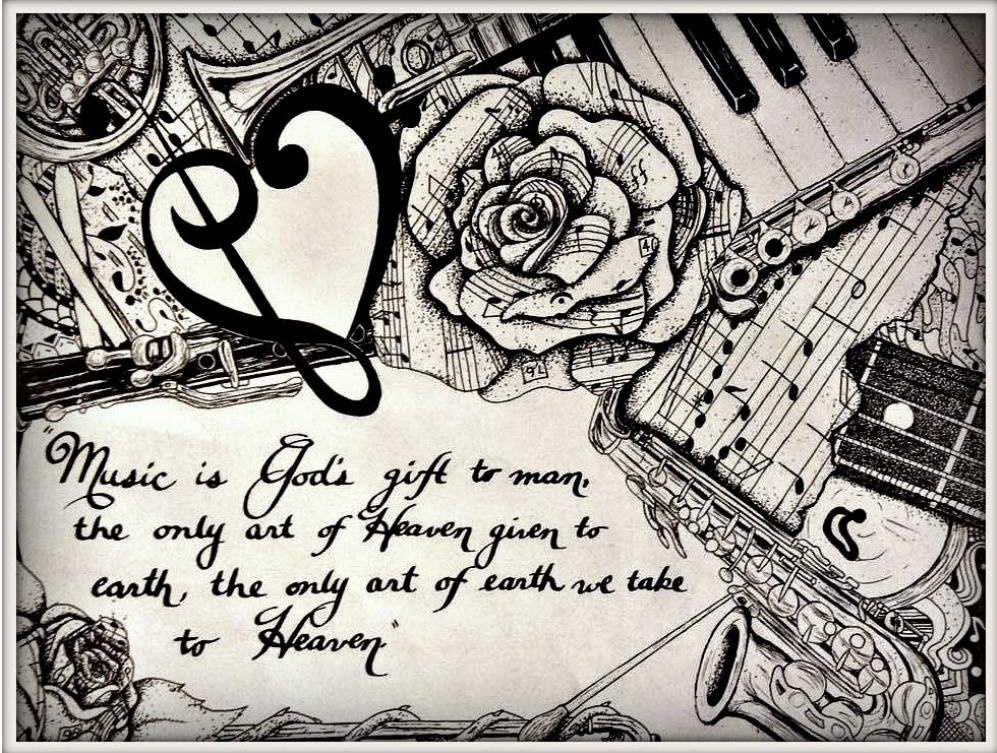 "Music is God's gift to man,
the only art of Heaven given to
earth, the only art of earth we take
to Heaven"